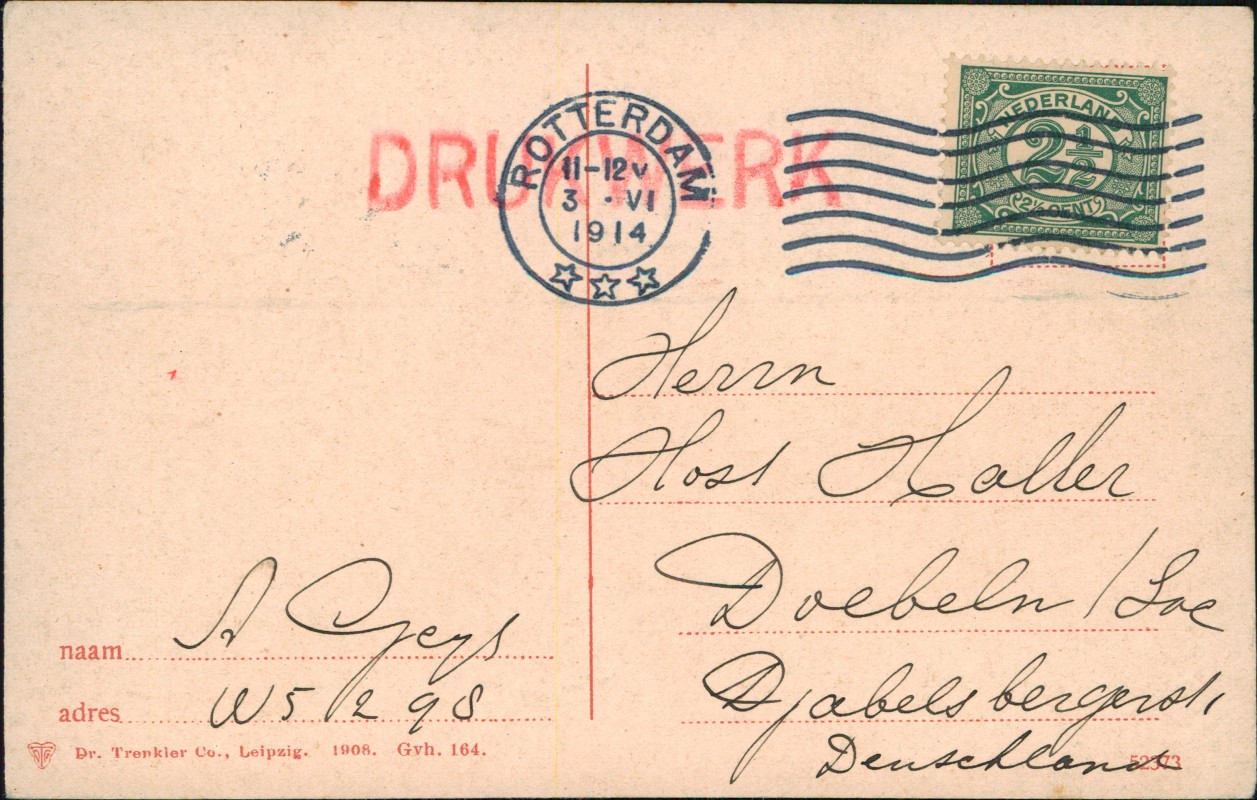 DRUKWERK
ROTTERDAM
11-12V
3 · VI
1914
NEDERLAND
2 1/2
2½ CENT
Herrn
Host Haller
Doebeln / Sac
Djabelsbergerst,
Deuschland
naam Geys
adres W5 298
Dr. Trenkler Co., Leipzig. 1908. Gvh. 164.
52373